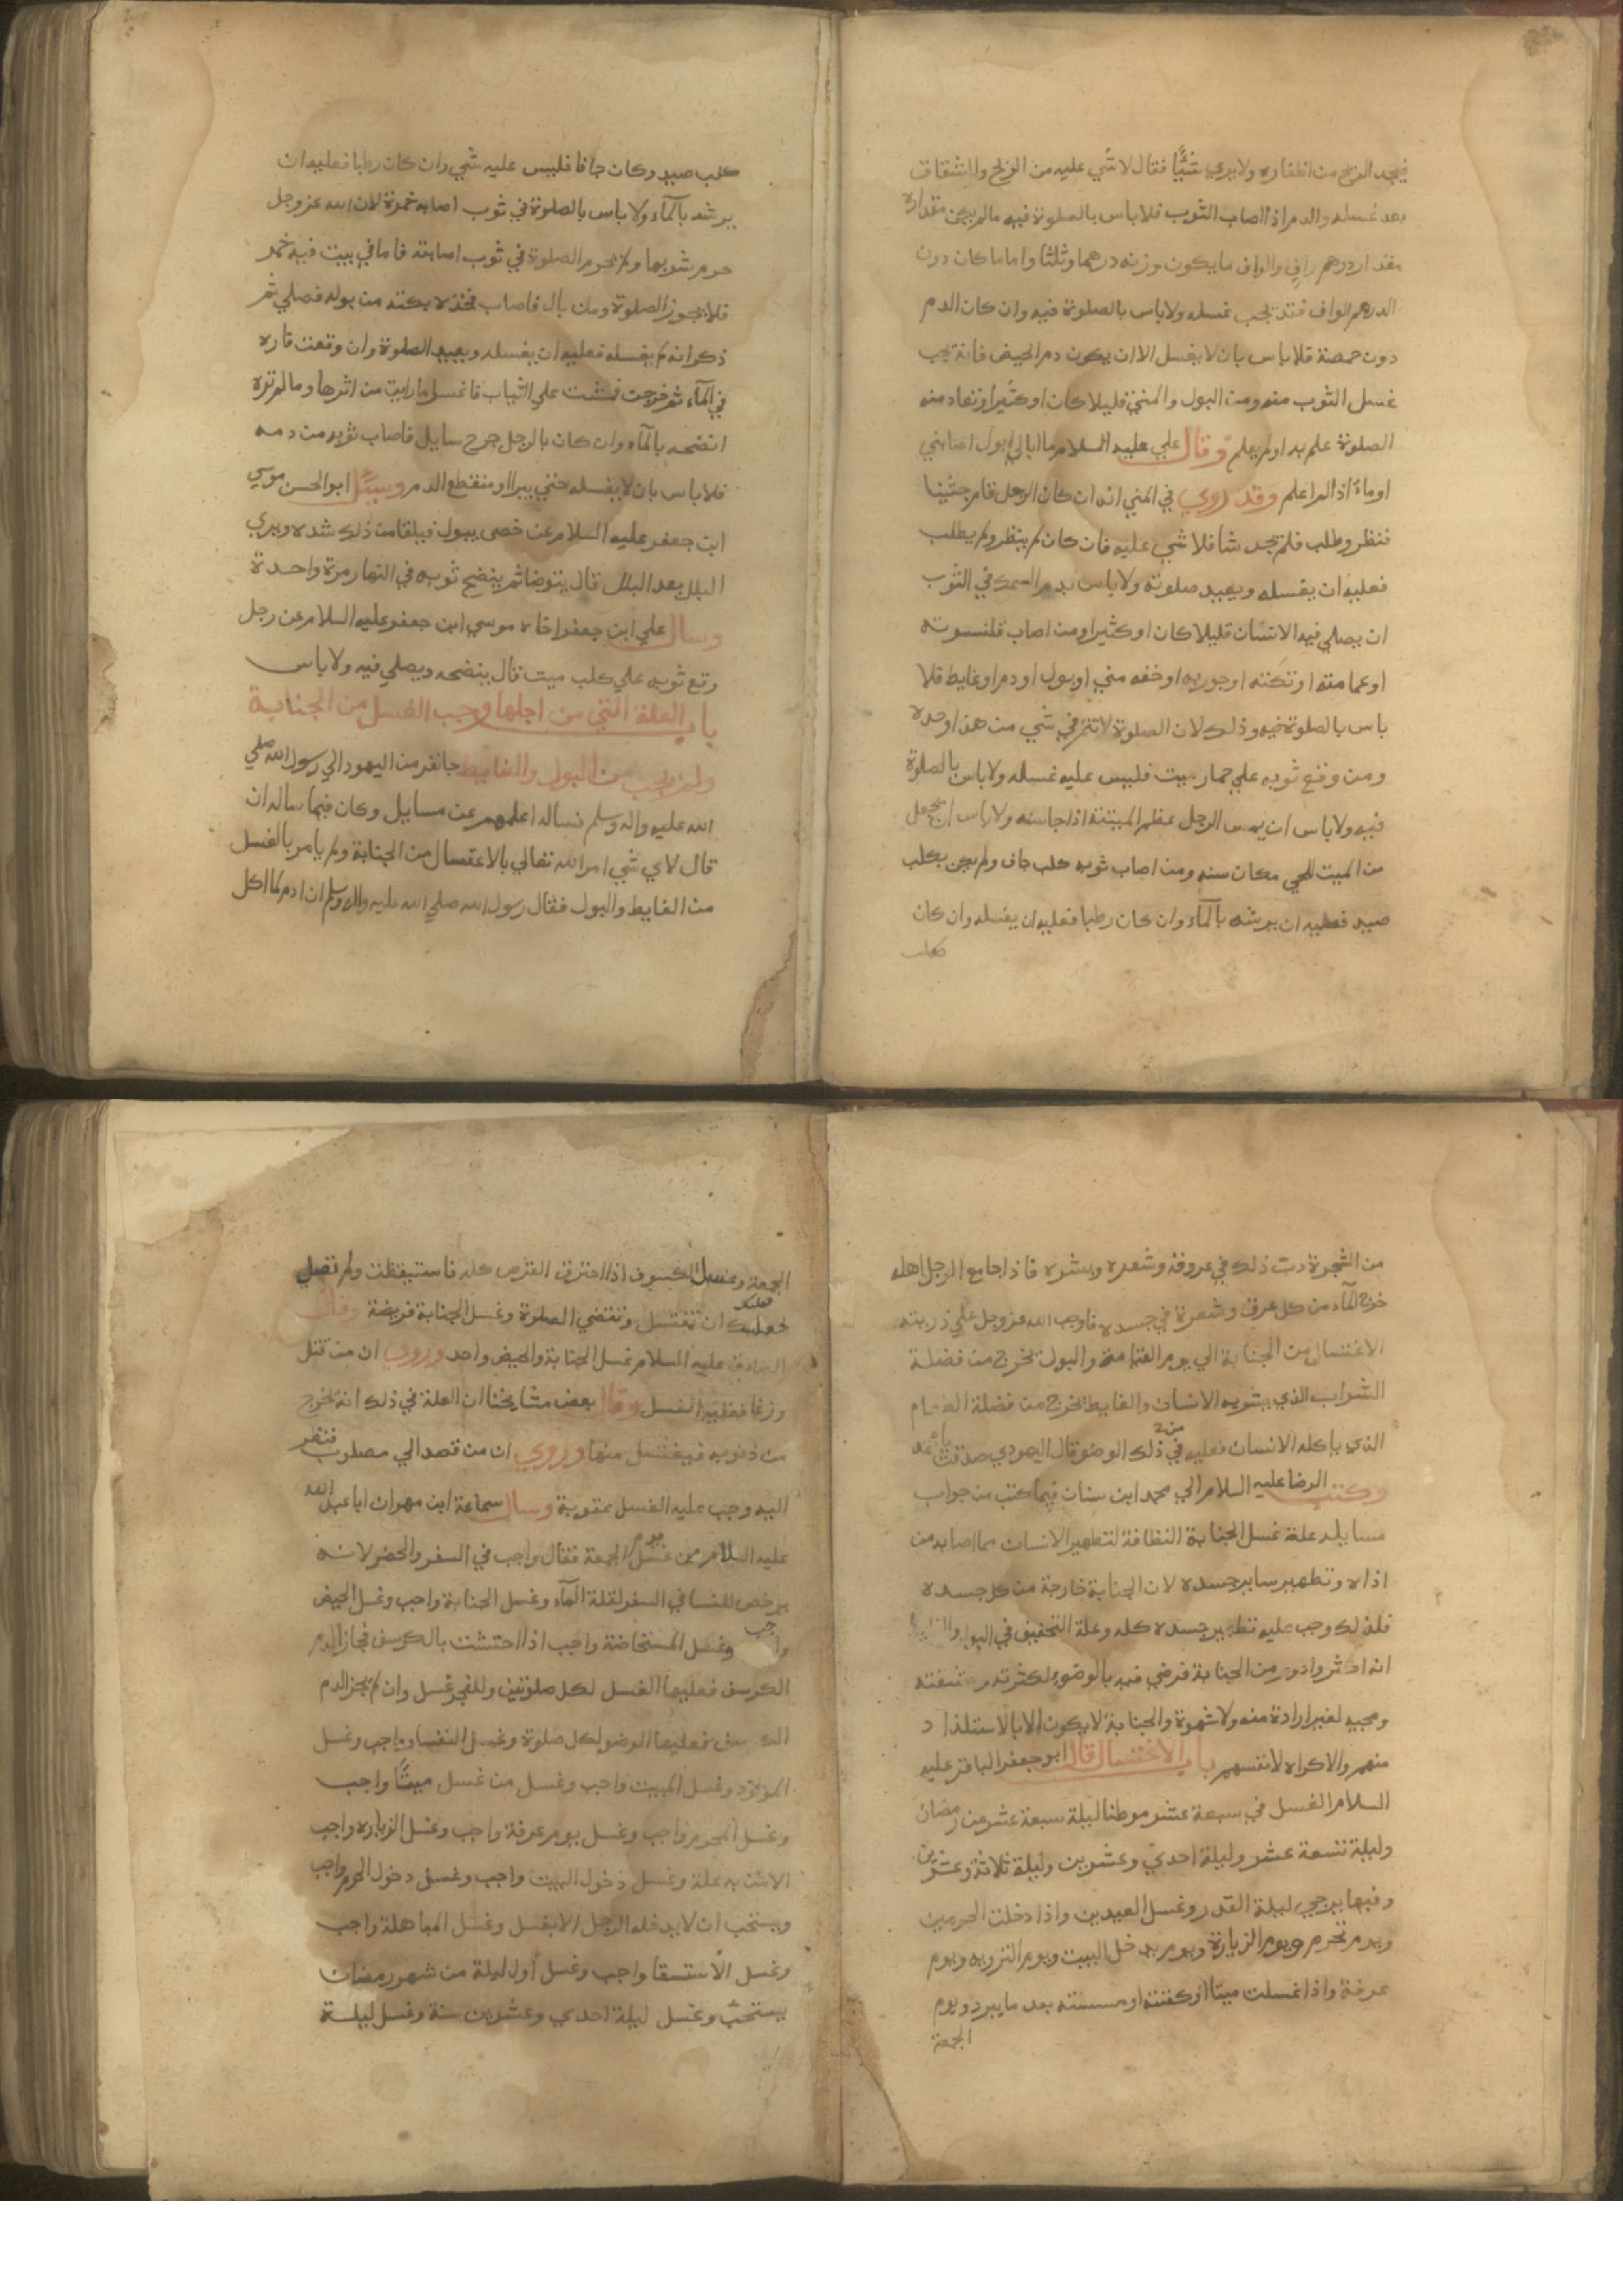 فيجد الريح من اظفاره ولا يري شيًّا فقال لا شي عليه من الريح والشقاق
بعد غسله والدم اذا اصاب الثوب فلا باس بالصلوة فيه مالم يكن مقداره
مقدار درهم وافي والوافي ما يكون وزنه درهما وثلثا واما ما كان دون
الدرهم الوافي فقد يجب غسله ولا باس بالصلوة فيه وان كان الدم
دون حمصة فلا باس بان لا يغسل الا ان يكون دم الحيض فانه يجب
غسل الثوب منه ومن البول والمني قليلا كان او كثيرا وتعاد منه
الصلوة علم به او لم يعلم وقال علي عليه السلام ما ابالي ابول اصابني
او ماء اذا لم اعلم وقد روي في المني انه ان كان الرجل قام جنبا
فنظر وطلب فلم يجد شا فلا شي عليه فان كان لم ينظر ولم يطلب
فعليه ان يغسله ويعيد صلوته ولا باس بدم السمك في الثوب
ان يصلي فيه الانسان قليلا كان او كثيرا ومن اصاب قلنسوته
او عمامته او تكته او جوربه او خفه مني او بول او دم او غايط فلا
باس بالصلوة فيه وذلك لان الصلوة لا تتم في شي من هذا وحده
ومن وقع ثوبه علي حمار ميت فليس عليه غسله ولا باس بالصلوة
فيه ولا باس ان يمس الرجل عظم الميتة اذا جا سنه ولا باس ان يجعل
من الميت للحي مكان سنه ومن اصاب ثوبه كلب جاف ولم يكن بكلب
صيد فعليه ان يرشه بالمآء وان كان رطبا فعليه ان يغسله وان كان
كلب
كلب صيد وكان جافا فليس عليه شي وان كان رطبا فعليه ان
يرشه بالمآء ولا باس بالصلوة في ثوب اصابه خمرة لان الله عز وجل
حرم شربها ولم يحرم الصلوة في ثوب اصابته فاما في بيت فيه خمر
فلا يجوز الصلوة ومن بال فاصاب فخذه نكتة من بوله فصلي ثم
ذكر انه لم يغسله فعليه ان يغسله ويعيد الصلوة وان وقعت فاره
في المآء ثم خرجت فمشت علي الثياب فاغسل ما رايت من اثرها وما لم تره
انضحه بالمآء وان كان بالرجل جرح سايل فاصاب ثوبه من دمه
فلا باس بان لا يغسله حتي يبرا او منقطع الدم وسيًل ابو الحسن موسي
ابن جعفر عليه السلام عن خصي يبول فيلقا من ذلك شده ويري
البلل بعد البلل قال يتوضا ثم ينضح ثوبه في النهار مرة واحدة
وسال علي ابن جعفر اخاه موسي ابن جعفر عليه السلام عن رجل
وقع ثوبه علي كلب ميت قال ينضحه ويصلي فيه ولا باس
باب العلة التي من اجلها وجب الغسل من الجنابة
ولم يجب من البول والغايط جا نفر من اليهود الي رسول الله صلي
الله عليه واله وسلم فساله اعلمهم عن مسايل وكان فيما ساله ان
قال لاي شي امر الله تعالي بالاغتسال من الجنابة ولم يامر بالغسل
من الغايط والبول فقال رسول الله صلي الله عليه واله وسلم ان ادم لما اكل
من الشجرة دب ذلك في عروقه وشعره وبشره فاذا جامع الرجل اهله
خرج المآء من كل عرق وشعرة في جسده فاوجب الله عز وجل علي ذريته
الاغتسال من الجنابة الي يوم القيامة والبول يخرج من فضلة
الشراب الذي يشربه الانسان والغايط يخرج من فضلة الطعام
الذي ياكله الانسان فعليه في ذلك الوضو قال اليهودي صدقت يا محمد
وكتب الرضا عليه السلام الي محمد ابن سنان فيما كتب من جواب
مسايله علة غسل الجنابة النظافة لتطهير الانسان مما اصابه من
اذاه وتطهير ساير جسده لان الجنابة خارجة من كل جسده
فلذلك وجب عليه تطهير جسده كله وعلة التخفيف في البول والغايط
انه اكثر وادوم من الجنابة فرضي فيه بالوضو لكثرته ومشقته
ومجيه لغير ارادة منه ولا شهوة والجنابة لا يكون الا بالاستلذاذ
منهم والاكراه لانفسهم باب الاغتسال قال ابو جعفر الباقر عليه
السلام الغسل في سبعة عشر موطنا ليلة سبعة عشر من رمضان
وليلة تسعة عشر وليلة احدي وعشرين وليلة ثلاثة وعشرين
وفيها يرجي ليلة القدر وغسل العيدين واذا دخلت الحرمين
ويوم تحرم ويوم الزيارة ويوم يدخل البيت ويوم الترويه ويوم
عرفة واذا غسلت ميتا او كفنته او مسسته بعد ما يبرد ويوم
الجمعة
الجمعة وغسل الكسوف اذا احترق القرص كله فاستيقظت ولم تصل
فعليك ان تغتسل وتقضي الصلوة وغسل الجنابة فريضة وقال
الصادق عليه السلام غسل الجنابة والحيض واحد وروي ان من قتل
وزغا فعليه الغسل وقال بعض مشايخنا ان العلة في ذلك انه يخرج
من ذنوبه فيغتسل منها وروي ان من قصد الي مصلوب فنظر
اليه وجب عليه الغسل عقوبة وسال سماعة ابن مهران ابا عبد الله
عليه السلام من غسل يوم الجمعة فقال واجب في السفر والحضر لانه
يرخص للنسا في السفر لقلة المآء وغسل الجنابة واجب وغسل الحيض
واجب وغسل المستحاضة واجب اذا احتشت بالكرسف فجاز الدم
الكرسف فعليها الغسل لكل صلوتين وللفجر غسل وان لم يجز الدم
الكرسف فعليها الوضو لكل صلوة وغسل النفسا واجب وغسل
المولود وغسل الميت واجب وغسل من غسل ميتًا واجب
وغسل المحرم واجب وغسل يوم عرفة واجب وغسل الزياره واجب
الا من به علة وغسل دخول البيت واجب وغسل دخول الحرم واجب
ويستحب ان لا يدخله الرجل الا بغسل وغسل المباهلة واجب
وغسل الاستسقا واجب وغسل اول ليلة من شهر رمضان
يستحب وغسل ليلة احدي وعشرين سنة وغسل ليلة